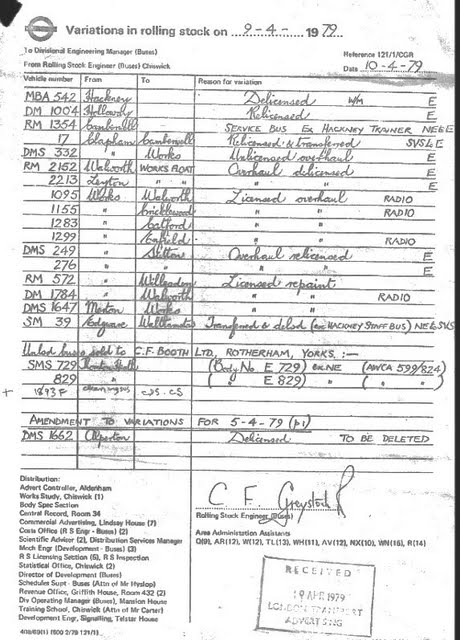 Variations in rolling stock on 9-4- 1979
To Divisional Engineering Manager (Buses)
Reference 121/1/CGR
From Rolling Stock Engineer (Buses) Chiswick
Date 10-4-79
Vehicle number From To Reason for variation
MBA 542 Hackney Delicensed W/M E
DM 1004 Holloway Relicensed E
RM 1354 Camberwell SERVICE BUS Ex HACKNEY TRAINER NE & E
17 Clapham Camberwell Relicensed & transferred SVS & E
DMS 332 " Works Unlicensed overhaul E
RM 2152 Walworth WORKS FLOAT Overhaul delicensed E
2213 Leyton " " " " E
1095 Works Walworth Licensed overhaul RADIO
1155 " Cricklewood " " RADIO
1283 " Catford " "
1299 " Enfield " " RADIO
DMS 249 " Sutton Overhaul relicensed E
276 " " " " E
RM 572 " Willesden Licensed repaint
DM 1784 " Walworth " " RADIO
DMS 1647 Merton Works " "
SM 39 Edgware Walthamstow Transferred & delsd (ex HACKNEY STAFF BUS) NE & SVS
Unlsd buses sold to C.F. BOOTH LTD, ROTHERHAM, YORKS. :—
SMS 729 (Body No. E 729) ex NE (AWCA 599/824)
829 " ( " E 829) " ( " " )
+ 1893 F CDS. CS
AMENDMENT TO VARIATIONS FOR 5-4-79 (p1)
DMS 1662 Alperton Delicensed TO BE DELETED
Distribution:
Advert Controller, Aldenham
Works Study, Chiswick (1)
Body Spec Section
Central Record, Room 34
Commercial Advertising, Lindsay House (7)
Costs Office (R S Engr - Buses) (2)
Scientific Advisor (2), Distribution Services Manager
Mech Engr (Development - Buses) (3)
R S Licensing Section (5), R S Inspection
Statistical Office, Chiswick (2)
Director of Development (Buses)
Schedules Supt - Buses (Attn of Mr Hyslop)
Revenue Office, Griffith House, Room 432 (2)
Div Operating Manager (Buses), Mansion House
Training School, Chiswick (Attn of Mr Carter)
Development Engr, Signalling, Telstar House
C. F. Greystock
Rolling Stock Engineer (Buses)
Area Administration Assistants
Q(9), AR(12), W(12), TL(13), WH(11), AV(12), NX(10), WN(15), R(14)
RECEIVED
19 APR 1979
LONDON TRANSPORT
ADVERTISING